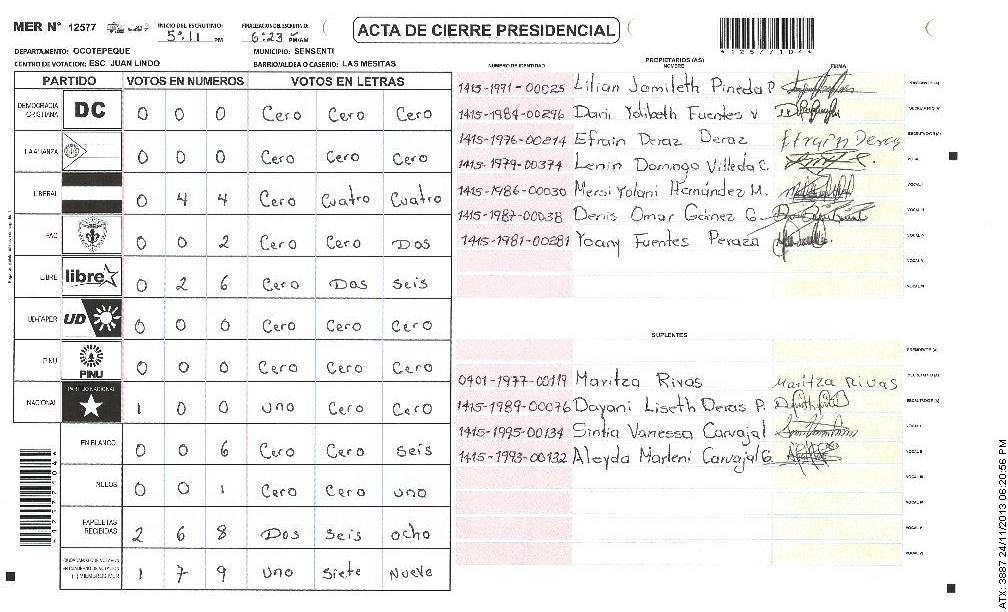 MER Nº 12577 INICIO DEL ESCRUTINIO: 5:11 PM FINALIZACION DEL ESCRUTINIO: 6:23 PM/AM
ACTA DE CIERRE PRESIDENCIAL
DEPARTAMENTO: OCOTEPEQUE MUNICIPIO: SENSENTI
CENTRO DE VOTACION: ESC. JUAN LINDO BARRIO/ALDEA O CASERIO: LAS MESITAS
PARTIDO VOTOS EN NUMEROS VOTOS EN LETRAS
DEMOCRACIA CRISTIANA DC 0 0 0 Cero Cero Cero
LA ALIANZA 0 0 0 Cero Cero Cero
LIBERAL 0 4 4 Cero Cuatro Cuatro
PAC 0 0 2 Cero Cero Dos
LIBRE libre 0 2 6 Cero Dos Seis
UD-FAPER UD 0 0 0 Cero Cero Cero
PINU PINU 0 0 0 Cero Cero Cero
NACIONAL PARTIDO NACIONAL 1 0 0 uno Cero Cero
EN BLANCO 0 0 6 Cero Cero Seis
NULOS 0 0 1 Cero Cero uno
PAPELETAS RECIBIDAS 2 6 8 Dos Seis ocho
1 7 9 uno Siete Nueve
PROPIETARIOS (AS)
NUMERO DE IDENTIDAD NOMBRE FIRMA
1415-1971-00025 Lilian Jamileth Pineda P.
1415-1984-00296 Dani Yolibeth Fuentes V
1415-1976-00214 Efrain Deraz Deraz
1415-1979-00374 Lenin Domingo Villeda C.
1415-1986-00030 Mersi Yolani Hernández M.
1415-1987-00038 Denis Omar Gómez G.
1415-1981-00281 Yoany Fuentes Peraza
SUPLENTES
0401-1977-00119 Maritza Rivas Maritza Rivas
1415-1989-00076 Dayani Liseth Deras P.
1415-1995-00134 Sintia Vanessa Carvajal
1415-1993-00132 Aleyda Marleni Carvajal G.
ATX: 3887 24/11/2013 06:20:56 PM